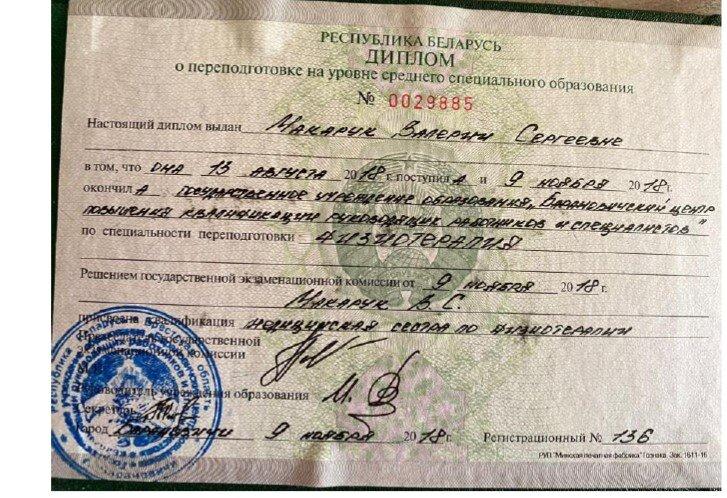 РЕСПУБЛИКА БЕЛАРУСЬ
ДИПЛОМ
о переподготовке на уровне среднего специального образования
№ 0029885
Настоящий диплом выдан Макарук Валерии Сергеевне
в том, что она 13 августа 2018 г. поступила и 9 ноября 2018 г.
окончила Государственное учреждение образования, Барановичский центр
повышения квалификации руководящих работников и специалистов"
по специальности переподготовки физиотерапия
Решением государственной экзаменационной комиссии от 9 ноября 2018 г.
Макарук В.С.
присвоена квалификация медицинская сестра по физиотерапии
государственной
экзаменационной комиссии
Руководитель учреждения образования
Секретарь
Город Барановичи 9 ноября 2018 г. Регистрационный № 136
РУП "Минская печатная фабрика" Гознака. Зак. 1611-16